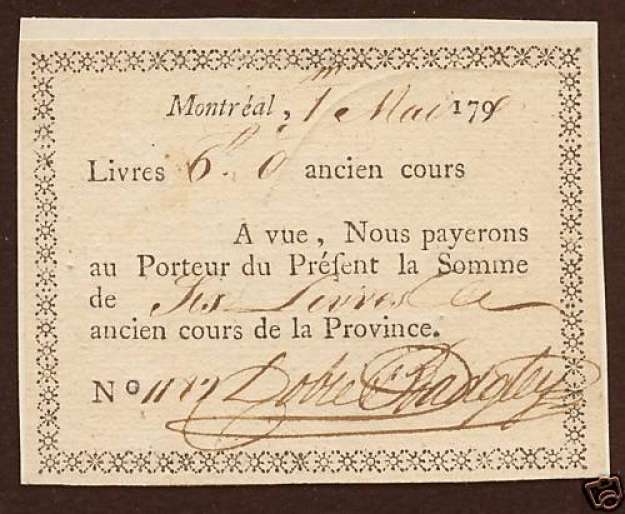 Montréal, 1 Mai 179
Livres 6 ancien cours
A vue, Nous payerons
au Porteur du Préſent la Somme
de Six Livres
ancien cours de la Province.
No Dobie & Badgley